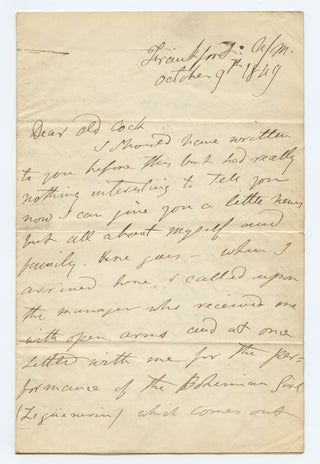 Frankfort a/m.
October 9th 1849
Dear old Cock
I should have written
to you before this but had really
nothing interesting to tell you
now I can give you a little news
but all about myself and
family. Here goes – when I
arrived home I called upon
the manager who received me
with open arms and at once
settled with me for the per-
formance of the Bohemian Girl
(Zigeünerin) which comes out